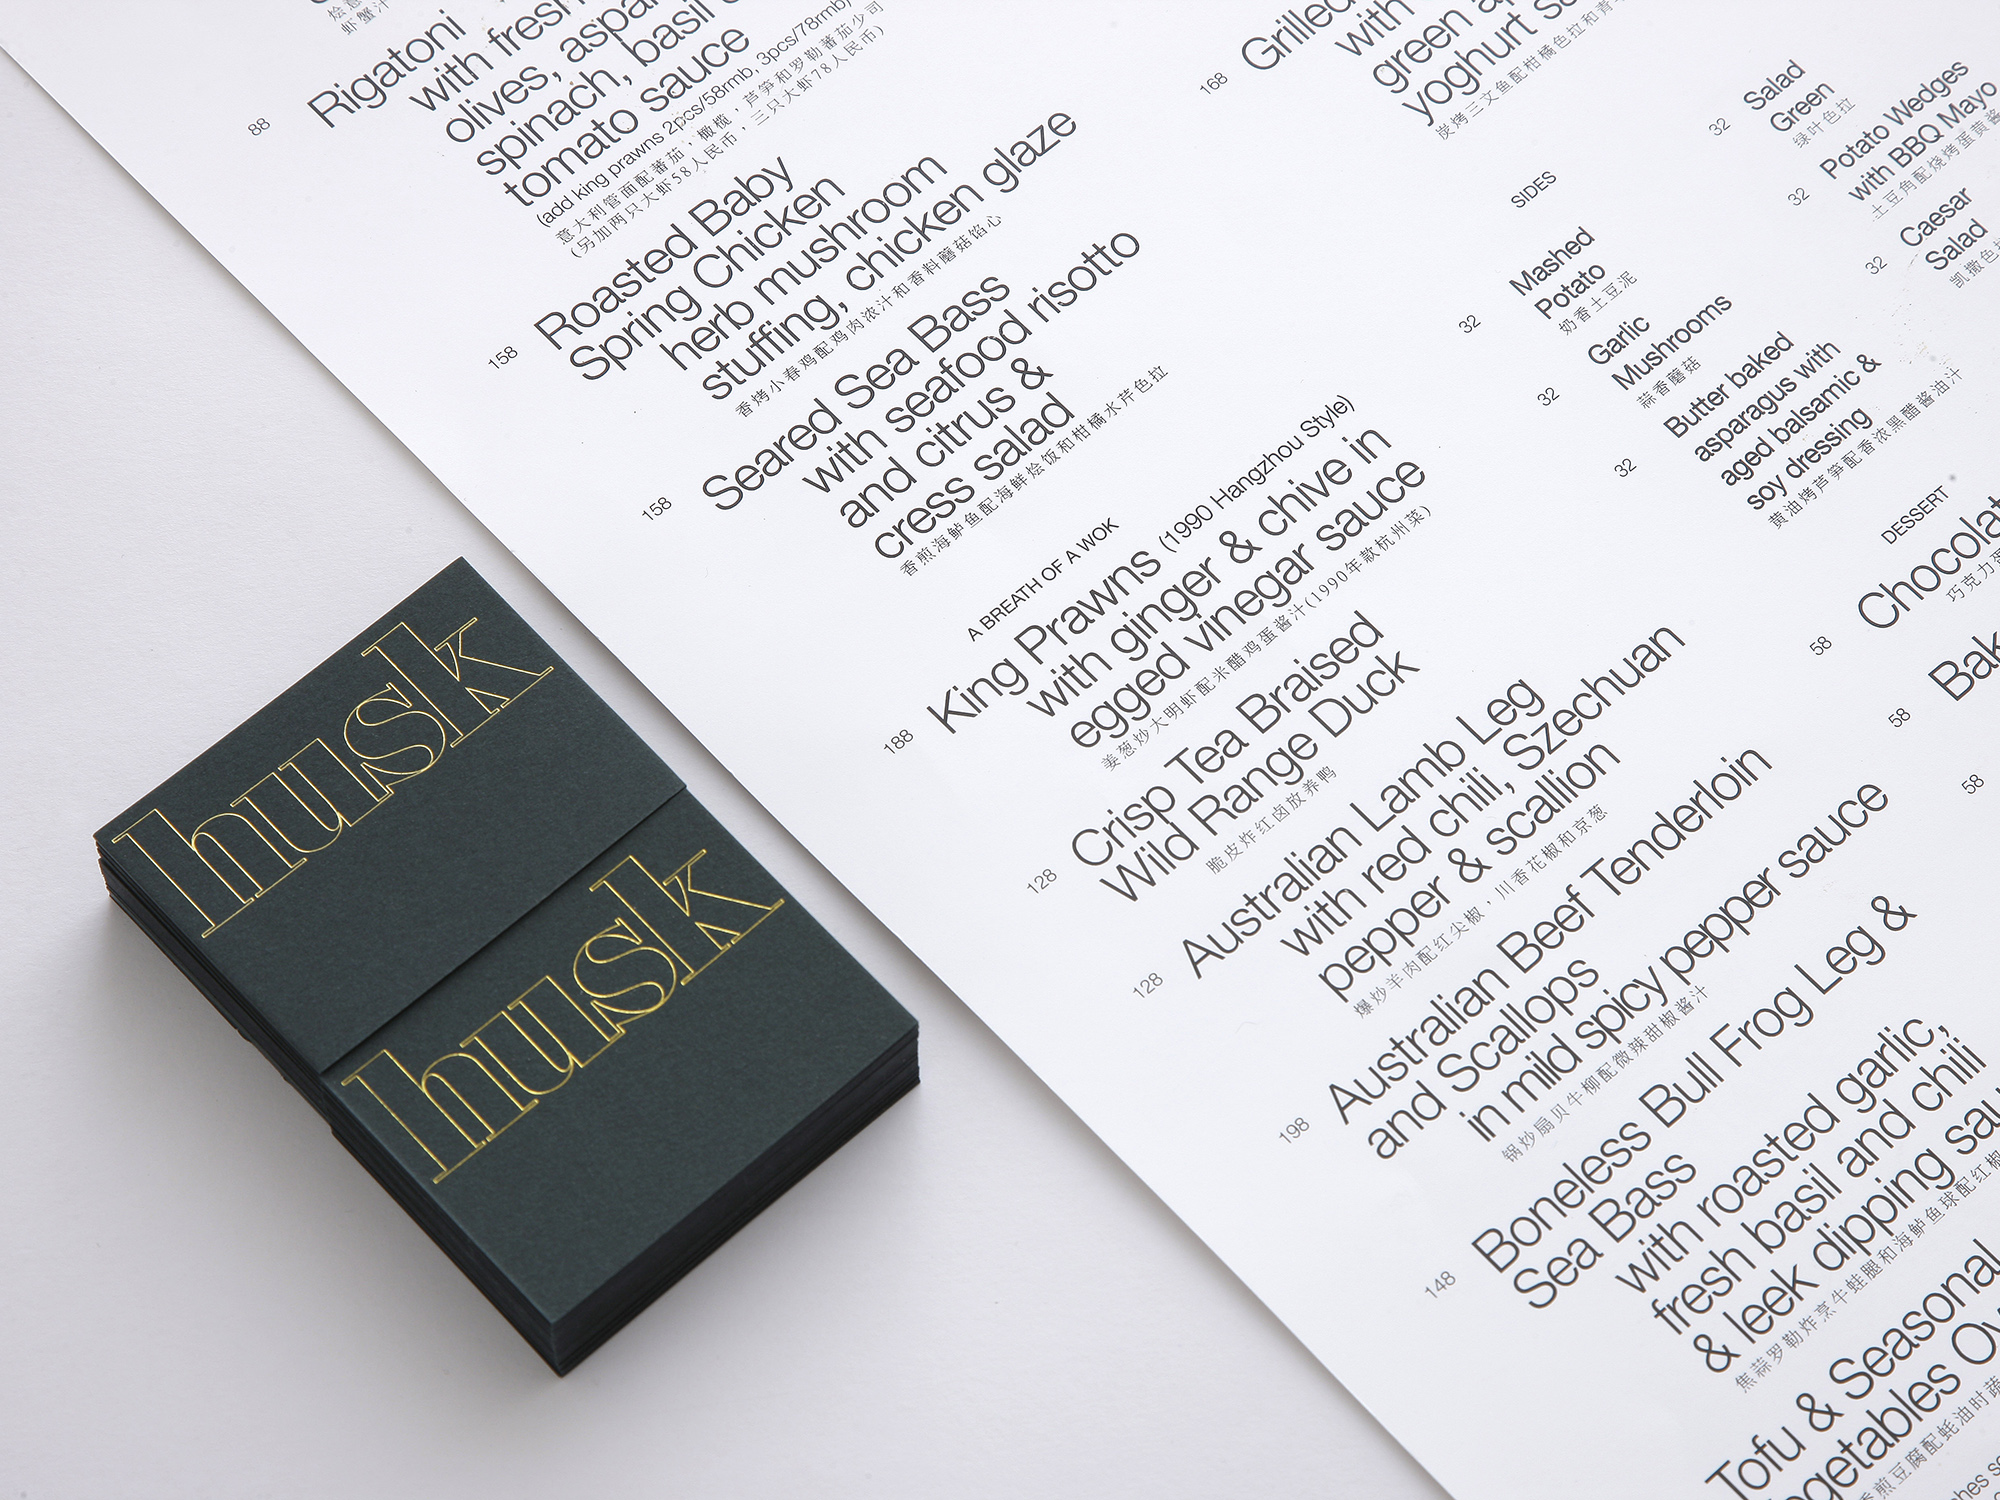 husk
husk
88
Rigatoni
with fresh
olives,
spinach, basil
tomato sauce
(add king prawns 2pcs/58rmb, 3pcs/78rmb)
意大利管面配蕃茄，橄榄，芦笋和罗勒蕃茄少司
(另加两只大虾58人民币，三只大虾78人民币)
158
Roasted Baby
Spring Chicken
herb mushroom
stuffing, chicken glaze
香烤小春鸡配鸡肉浓汁和香料蘑菇馅心
158
Seared Sea Bass
with seafood risotto
and citrus &
cress salad
香煎海鲈鱼配海鲜烩饭和柑橘水芹色拉
A BREATH OF A WOK
188
King Prawns (1990 Hangzhou Style)
with ginger & chive in
egged vinegar sauce
姜葱炒大明虾配米醋鸡蛋酱汁(1990年款杭州菜)
128
Crisp Tea Braised
Wild Range Duck
脆皮炸红卤放养鸭
128
Australian Lamb Leg
with red chili, Szechuan
pepper & scallion
爆炒羊肉配红尖椒，川香花椒和京葱
198
Australian Beef Tenderloin
and Scallops
in mild spicy pepper sauce
锅炒扇贝牛柳配微辣甜椒酱汁
148
Boneless Bull Frog Leg &
Sea Bass
with roasted garlic,
fresh basil and chili
& leek dipping
焦蒜罗勒炸烹牛蛙腿和海鲈鱼球配红椒
Tofu & Seasonal
168
Grilled
with
green
yoghurt
炭烤三文鱼配柑橘色拉和青
SIDES
32
Mashed
Potato
奶香土豆泥
32
Garlic
Mushrooms
蒜香蘑菇
32
Butter baked
asparagus with
aged balsamic &
soy dressing
黄油烤芦笋配香浓黑醋酱油汁
32
Salad
Green
绿叶色拉
32
Potato Wedges
with BBQ Mayo
土豆角配烧烤蛋黄酱
32
Caesar
Salad
凯撒色
DESSERT
58
巧克力
58
58